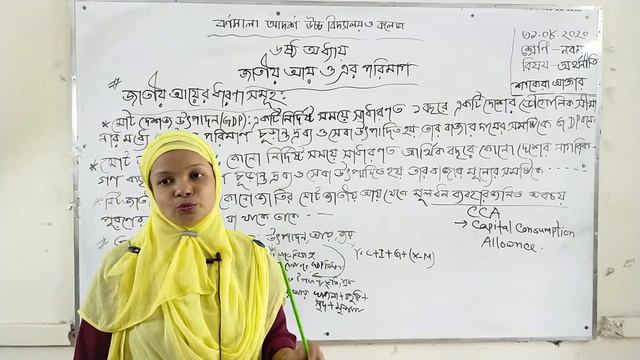 বর্ণমালা আদর্শ উচ্চ বিদ্যালয় ও কলেজ
৬ষ্ঠ অধ্যায়
জাতীয় আয় ও এর পরিমাপ
শ্রেণি - নবম
বিষয় - অর্থনীতি
শাকেরা আক্তার
# জাতীয় আয়ের ধারণা সমূহঃ
* মোট দেশজ উৎপাদন (GDP): একটি নির্দিষ্ট সময়ে সাধারণত ১ বছরে একটি দেশের ভৌগোলিক সীমা
নার মধ্যে পরিমাণ চূড়ান্ত দ্রব্য ও সেবা উৎপাদিত হয় তার বাজার দামের সমষ্টিকে GDP বলে
* মোট কোনো নির্দিষ্ট সময়ে সাধারণত আর্থিক বছরে কোনো দেশের নাগরিক
গণ চূড়ান্ত দ্রব্য ও সেবা উৎপাদিত হয় তার বাজার মূল্যের সমষ্টিকে - - - -
কোনো জাতির মোট জাতীয় আয় থেকে মূলধন ব্যবহার জনিত অবচয়
পূরণের থাকে তাকে - - -
CCA
→ Capital Consumption
Allowence.
উৎপাদন, আয়, ব্যয়
Y = C + I + G + (X-M)